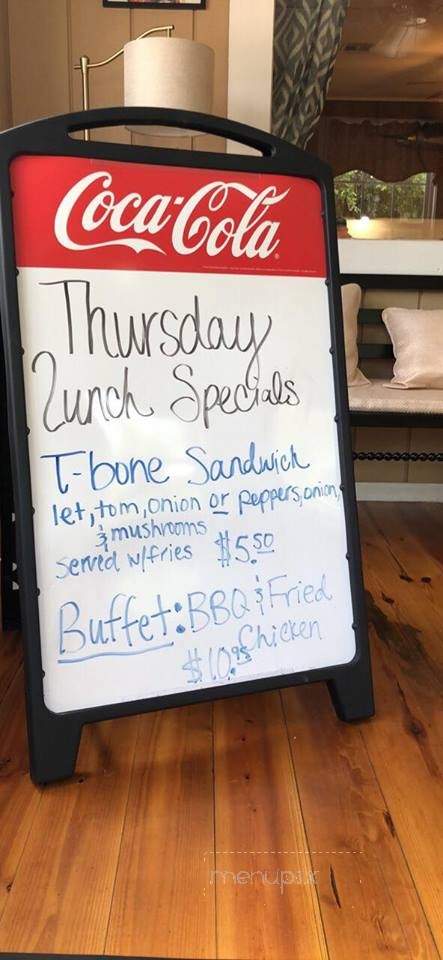 Coca-Cola
Thursday
Lunch Specials
T-bone Sandwich
let, tom, onion or peppers, onion,
& mushrooms
served w/fries $5.50
Buffet: BBQ & Fried
Chicken
$10.95
menupix